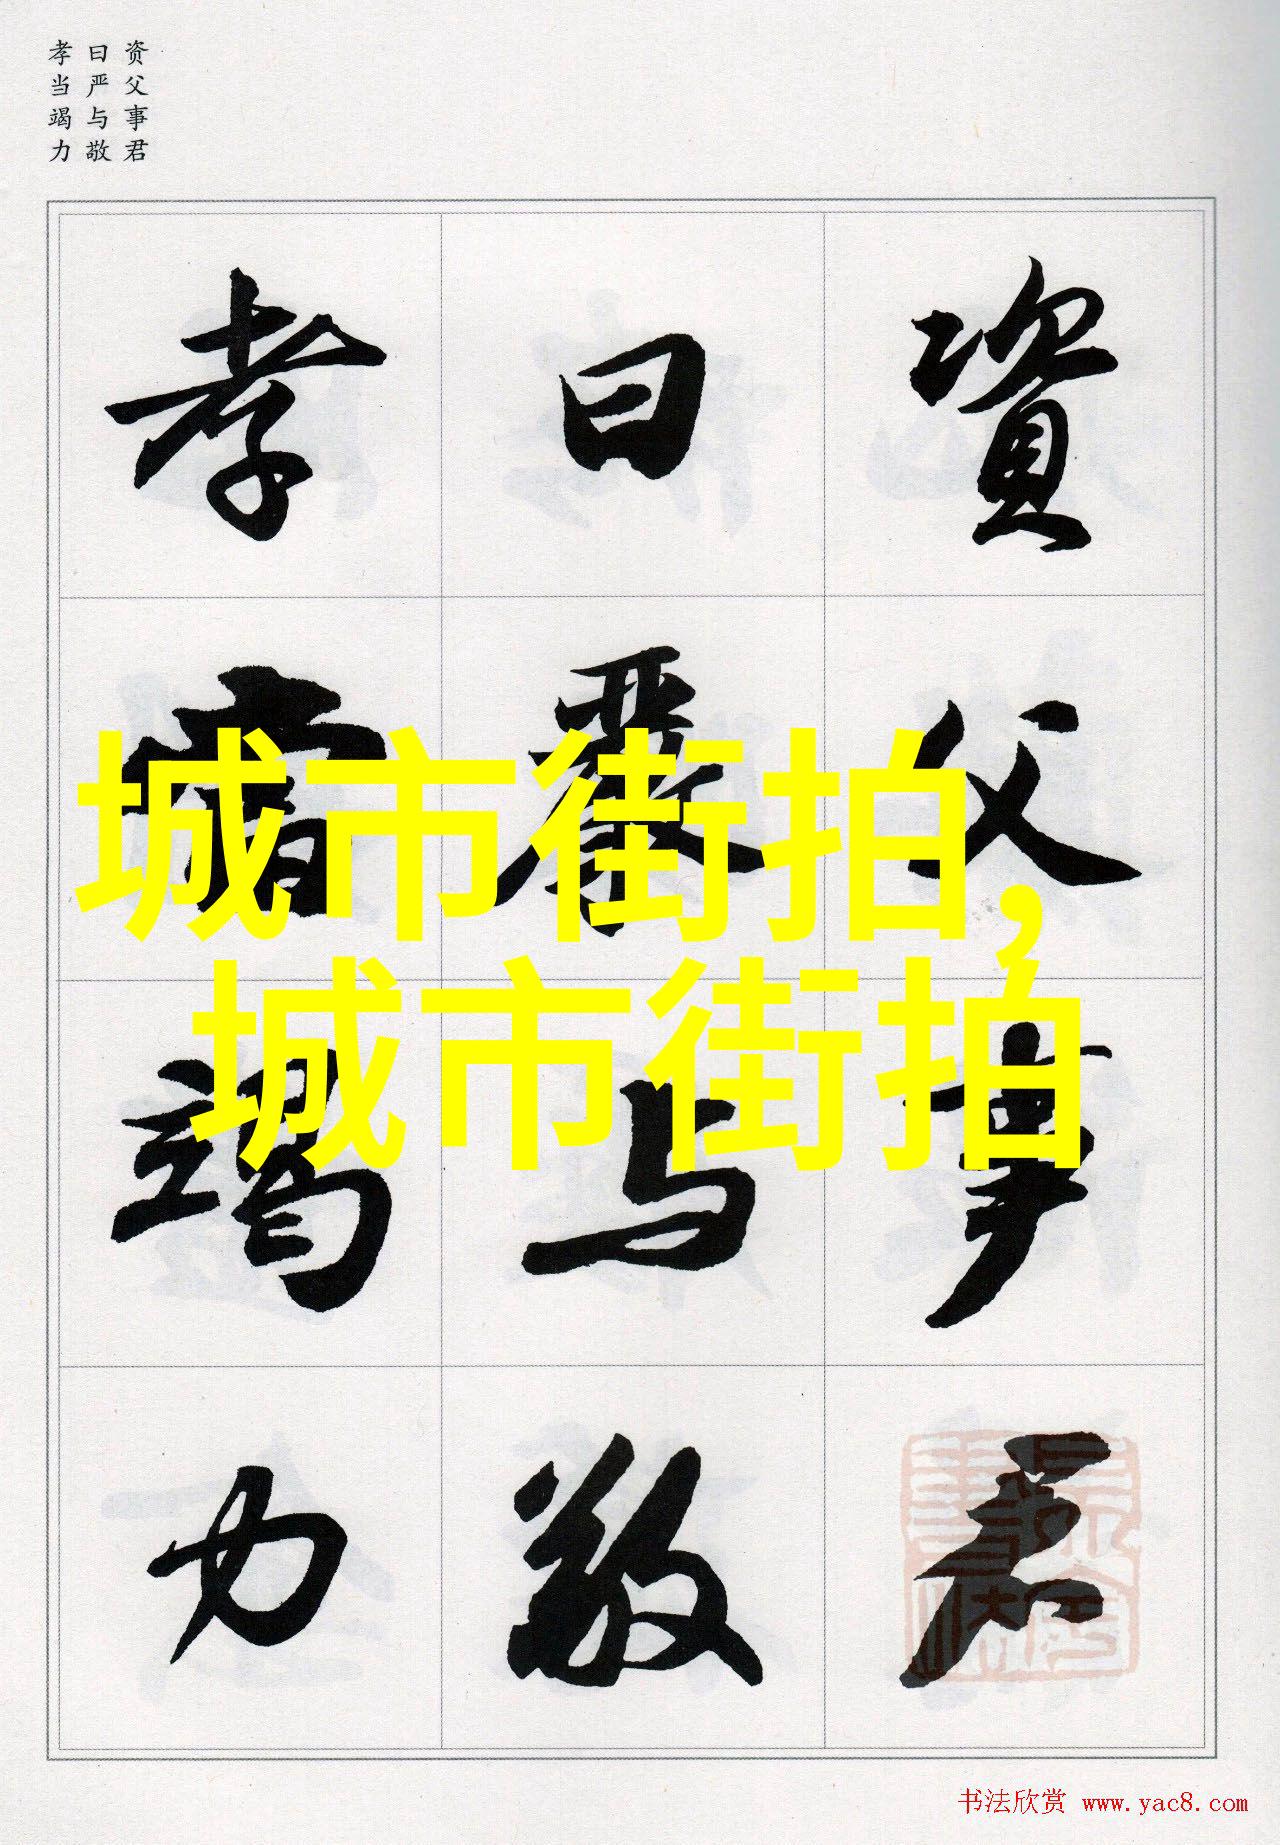 资父事君
曰严与敬
孝当竭力
資父事君
曰嚴与敬
孝當竭力
城市街拍,
城市街拍
书法欣赏 www.yac8.com